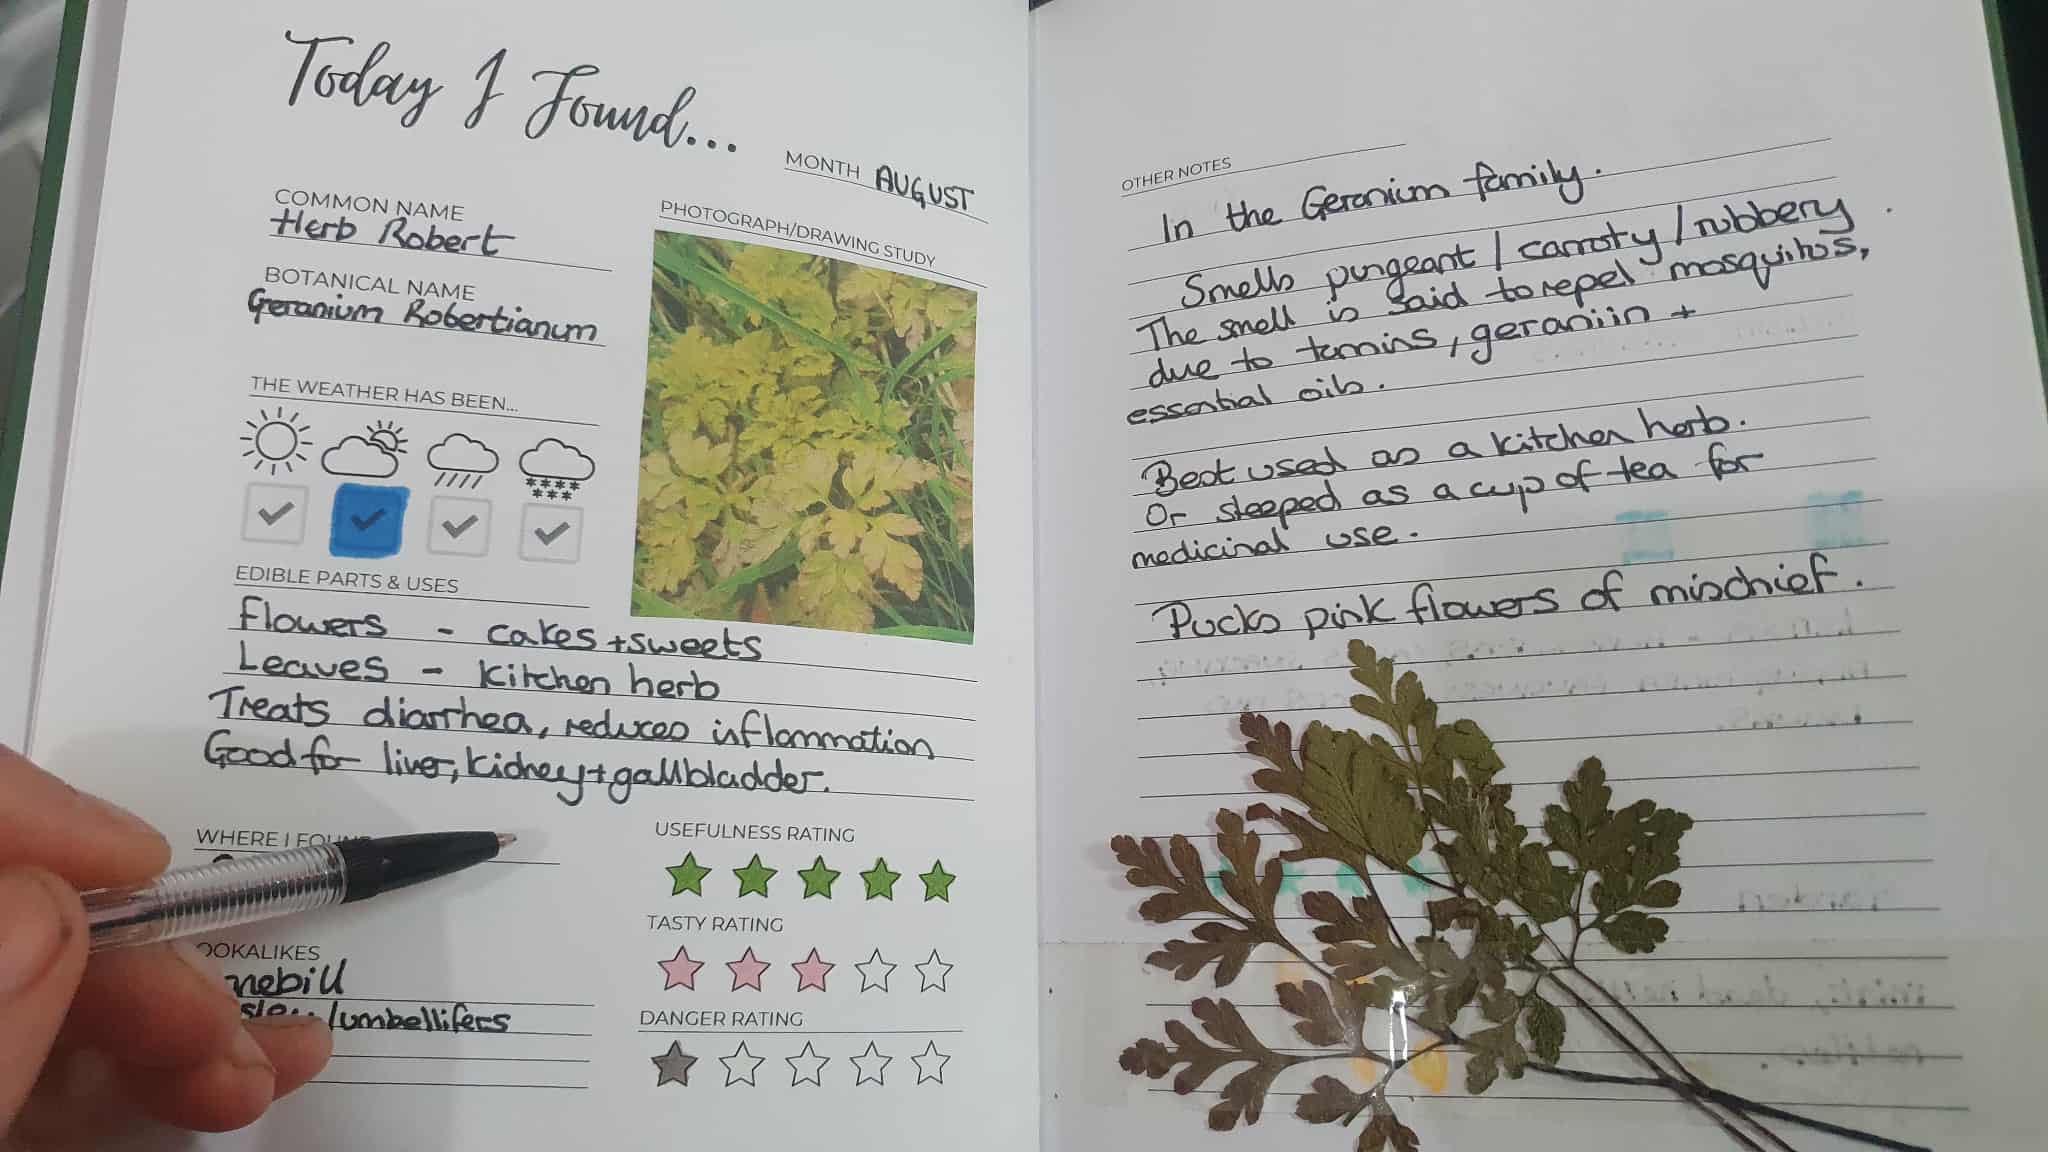 Today I Found...
MONTH AUGUST
COMMON NAME
Herb Robert
BOTANICAL NAME
Geranium Robertianum
THE WEATHER HAS BEEN...
PHOTOGRAPH/DRAWING STUDY
EDIBLE PARTS & USES
Flowers - cakes + sweets
Leaves - kitchen herb
Treats diarrhea, reduces inflammation
Good for liver, kidney + gallbladder.
WHERE I
USEFULNESS RATING
TASTY RATING
DANGER RATING
/umbellifers
OTHER NOTES
In the Geranium family.
Smells pungeant / carroty / rubbery.
The smell is said to repel mosquitos,
due to tannins, geraniin +
essential oils.
Best used as a kitchen herb.
Or steeped as a cup of tea for
medicinal use.
Pucks pink flowers of mischief.